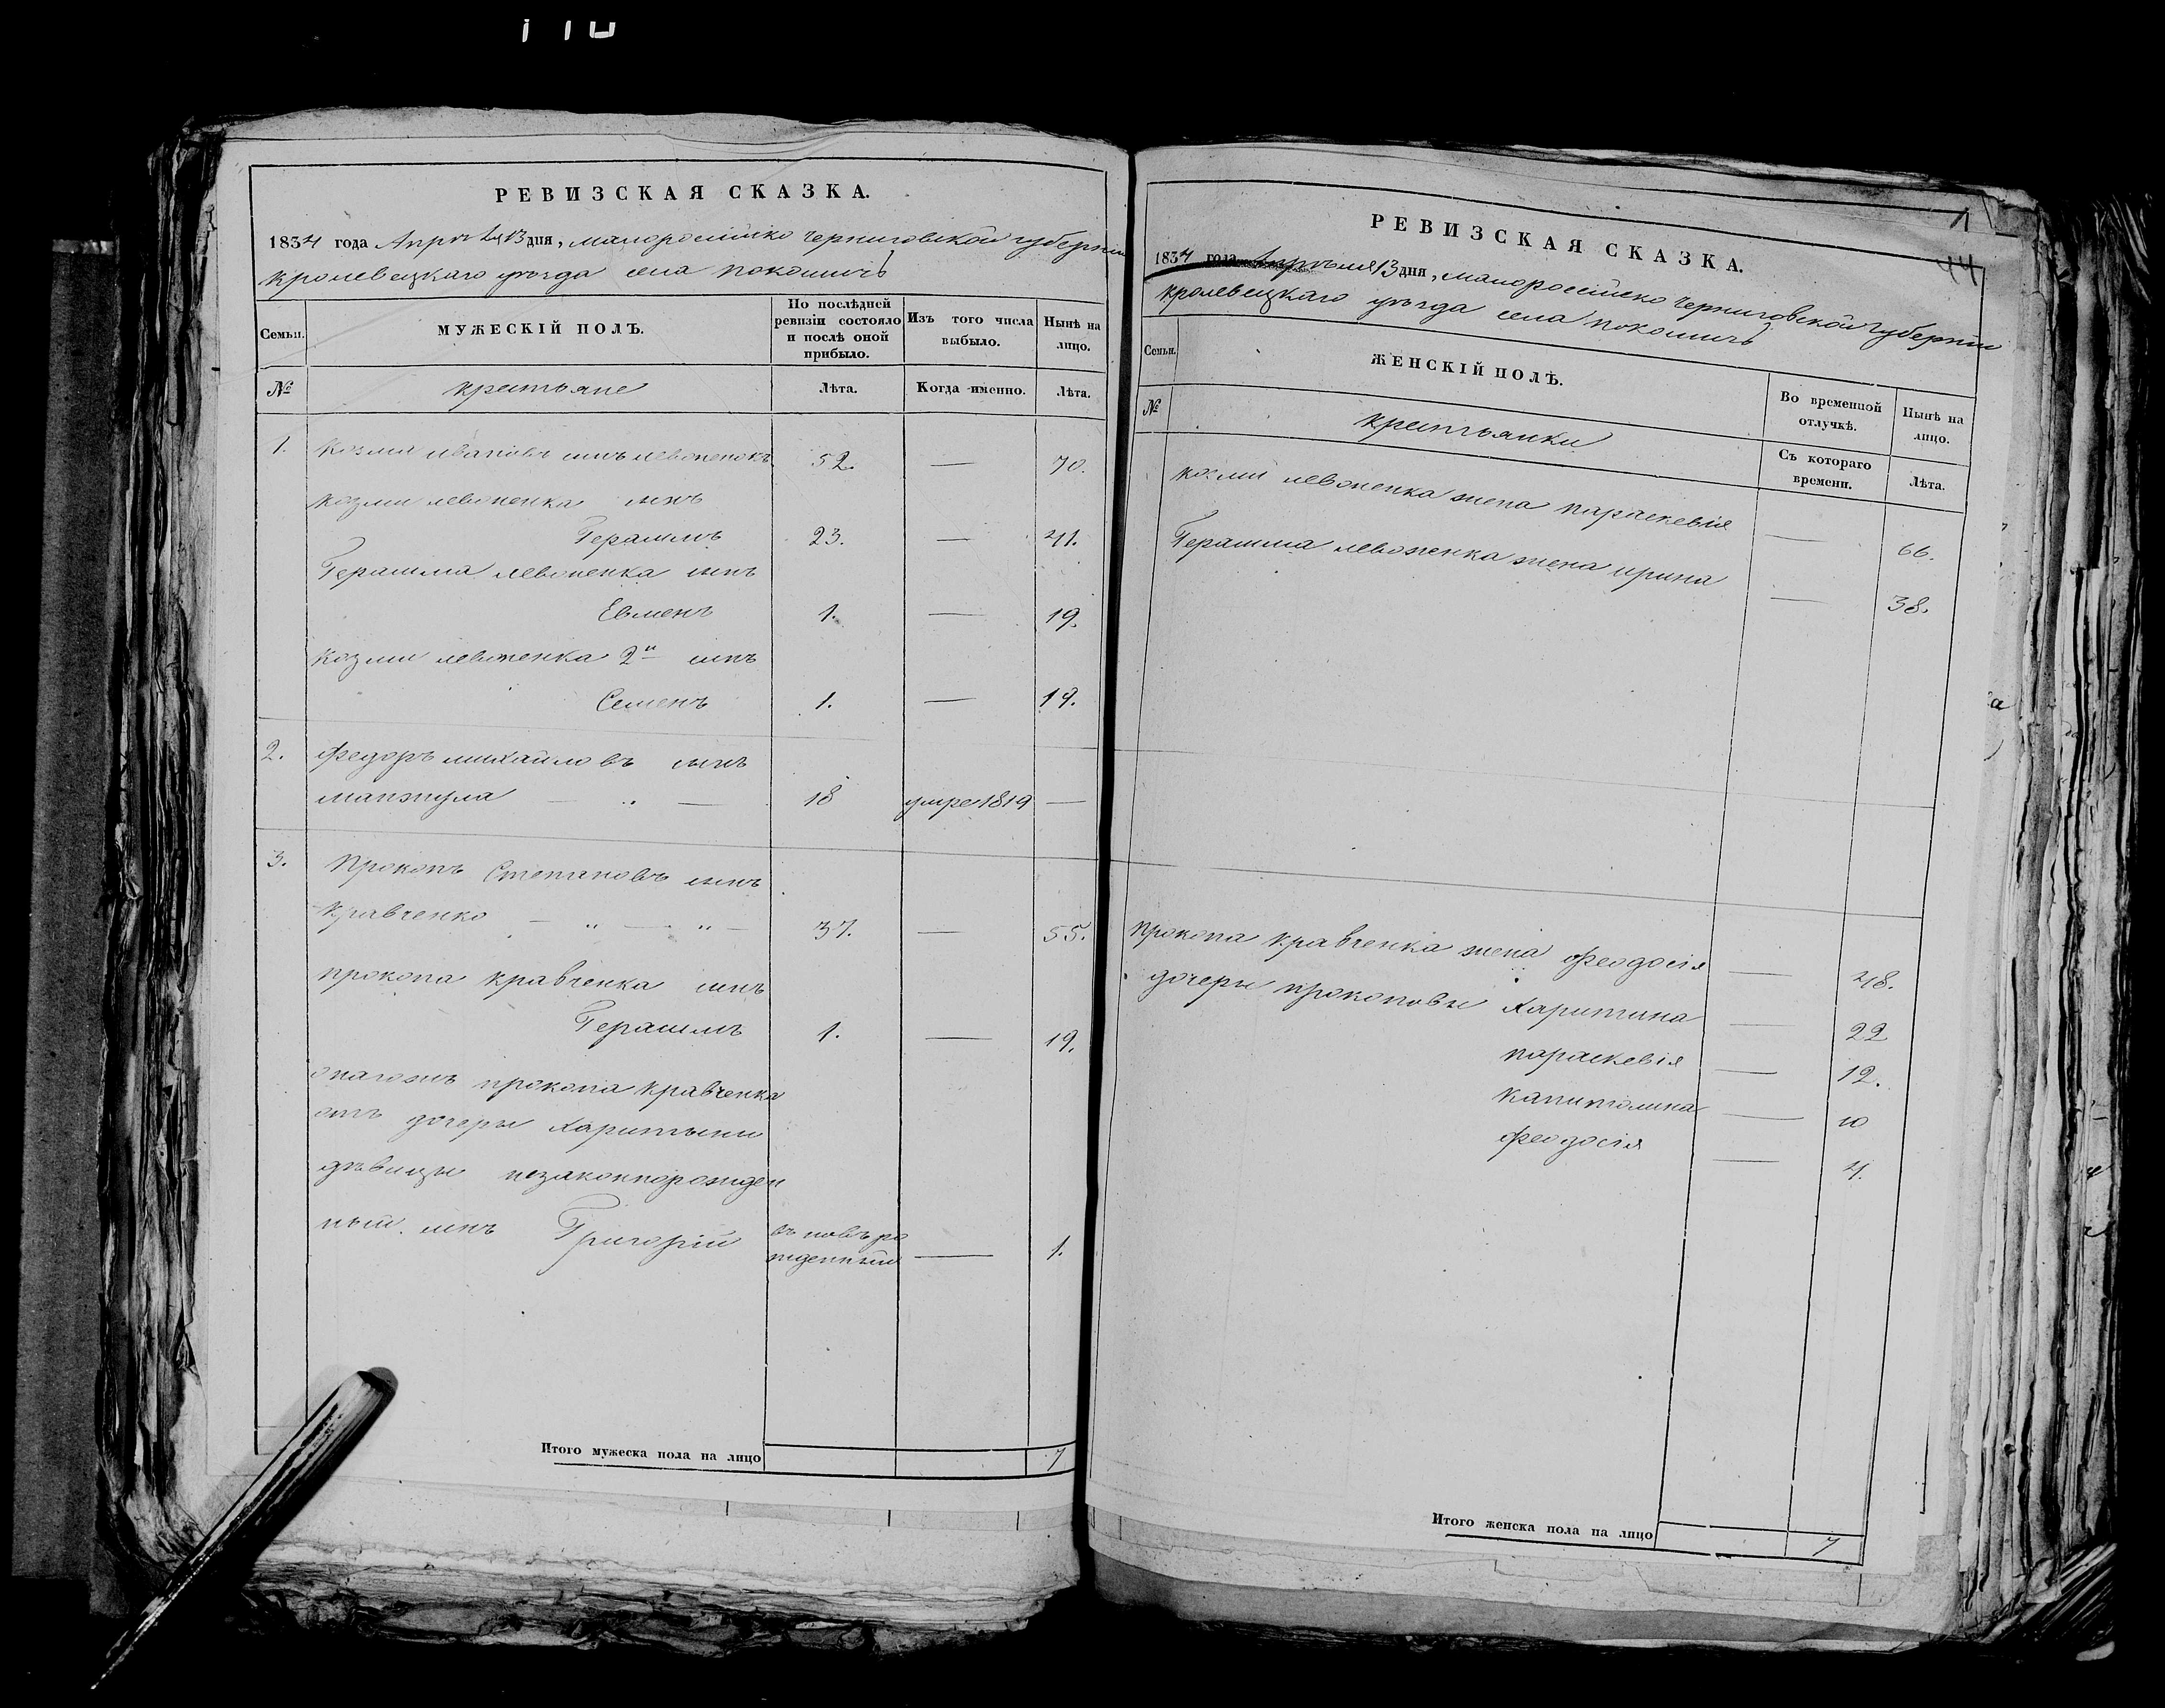 РЕВИЗСКАЯ СКАЗКА.
1834 года Апреля 13 дня, малоросійско Черниговской губерніи
кролевецкаго уѣзда села покошичъ
Семьи.
МУЖЕСКІЙ ПОЛЪ.
По послѣдней ревизіи состояло и послѣ оной прибыло.
Изъ того числа выбыло.
Нынѣ на лицо.
№
крестьяне
Лѣта.
Когда именно.
Лѣта.
1. Козма ивановъ сынъ левоненокъ 52. — 70.
Козми левоненка сынъ
Герасимъ 23. — 41.
Герасима левоненка сынъ
Евменъ 1. — 19.
Козми левоненка 2й сынъ
Семенъ 1. — 19.
2. Федоръ михайловъ сынъ
манжула — „ — 18 умре 1819 —
3. Прокопъ Степановъ сынъ
Кравченко — „ — „ — 37. — 55.
прокопа кравченка сынъ
Герасимъ 1. — 19.
онагожъ прокопа кравченка
отъ дочери Харитыни
дѣвицы незаконнорожден
ный сынъ Григорій въ новъ ро
жденный — 1.
Итого мужеска пола на лицо 7
44
РЕВИЗСКАЯ СКАЗКА.
1834 года Апрѣля 13 дня, малоросійско Черниговской губерніи
кролевецкаго уѣзда села покошичъ
Семьи.
ЖЕНСКІЙ ПОЛЪ.
Во временной отлучкѣ.
Нынѣ на лицо.
№
крестьянки
Съ котораго времени.
Лѣта.
козми левоненка жена параскевія — 66.
Герасима левоненка жена ирина — 38.
прокопа кравченка жена феодосія — 48.
дочеры прокоповы Харитина — 22
параскевія — 12.
капитолина — 10
феодосія — 4.
Итого женска пола на лицо 7